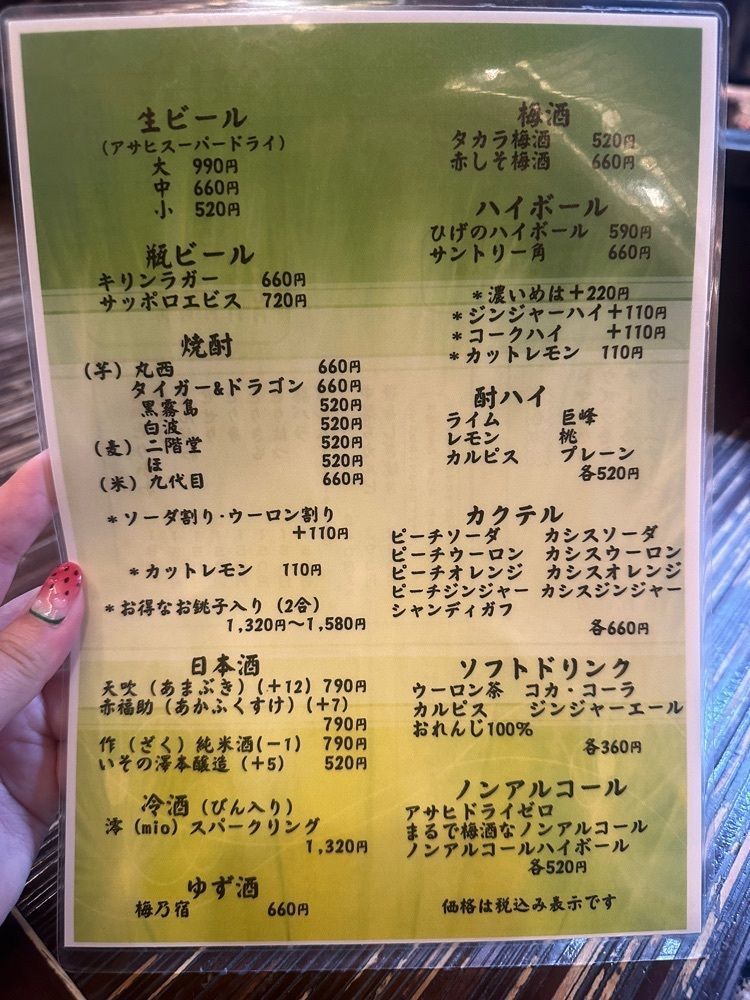 生ビール
(アサヒスーパードライ)
大 990円
中 660円
小 520円
瓶ビール
キリンラガー 660円
サッポロエビス 720円
焼酎
(芋) 丸西 660円
タイガー&ドラゴン 660円
黒霧島 520円
白波 520円
(麦) 二階堂 520円
ほ 520円
(米) 九代目 660円
*ソーダ割り・ウーロン割り
+110円
*カットレモン 110円
*お得なお銚子入り (2合)
1,320円〜1,580円
日本酒
天吹 (あまぶき) (+12) 790円
赤福助 (あかふくすけ) (+7)
790円
作 (ざく) 純米酒(-1) 790円
いその澤本醸造 (+5) 520円
冷酒 (びん入り)
澪 (mio) スパークリング
1,320円
ゆず酒
梅乃宿 660円
梅酒
タカラ梅酒 520円
赤しそ梅酒 660円
ハイボール
ひげのハイボール 590円
サントリー角 660円
*濃いめは+220円
*ジンジャーハイ+110円
*コークハイ +110円
*カットレモン 110円
酎ハイ
ライム 巨峰
レモン 桃
カルピス プレーン
各520円
カクテル
ピーチソーダ カシスソーダ
ピーチウーロン カシスウーロン
ピーチオレンジ カシスオレンジ
ピーチジンジャー カシスジンジャー
シャンディガフ
各660円
ソフトドリンク
ウーロン茶 コカ・コーラ
カルピス ジンジャーエール
おれんじ100%
各360円
ノンアルコール
アサヒドライゼロ
まるで梅酒なノンアルコール
ノンアルコールハイボール
各520円
価格は税込み表示です